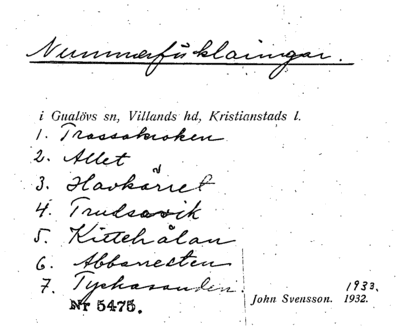 Nummerförklaringar.
i Gualövs sn, Villands hd, Kristianstads l.
1. Trossakroken
2. Allet
3. Havkärret
4. Trudsavik
5. Kittehålan
6. Abbaresten
7. Tyskasanden.
1933.
John Svensson. 1932.
Nr 5475.